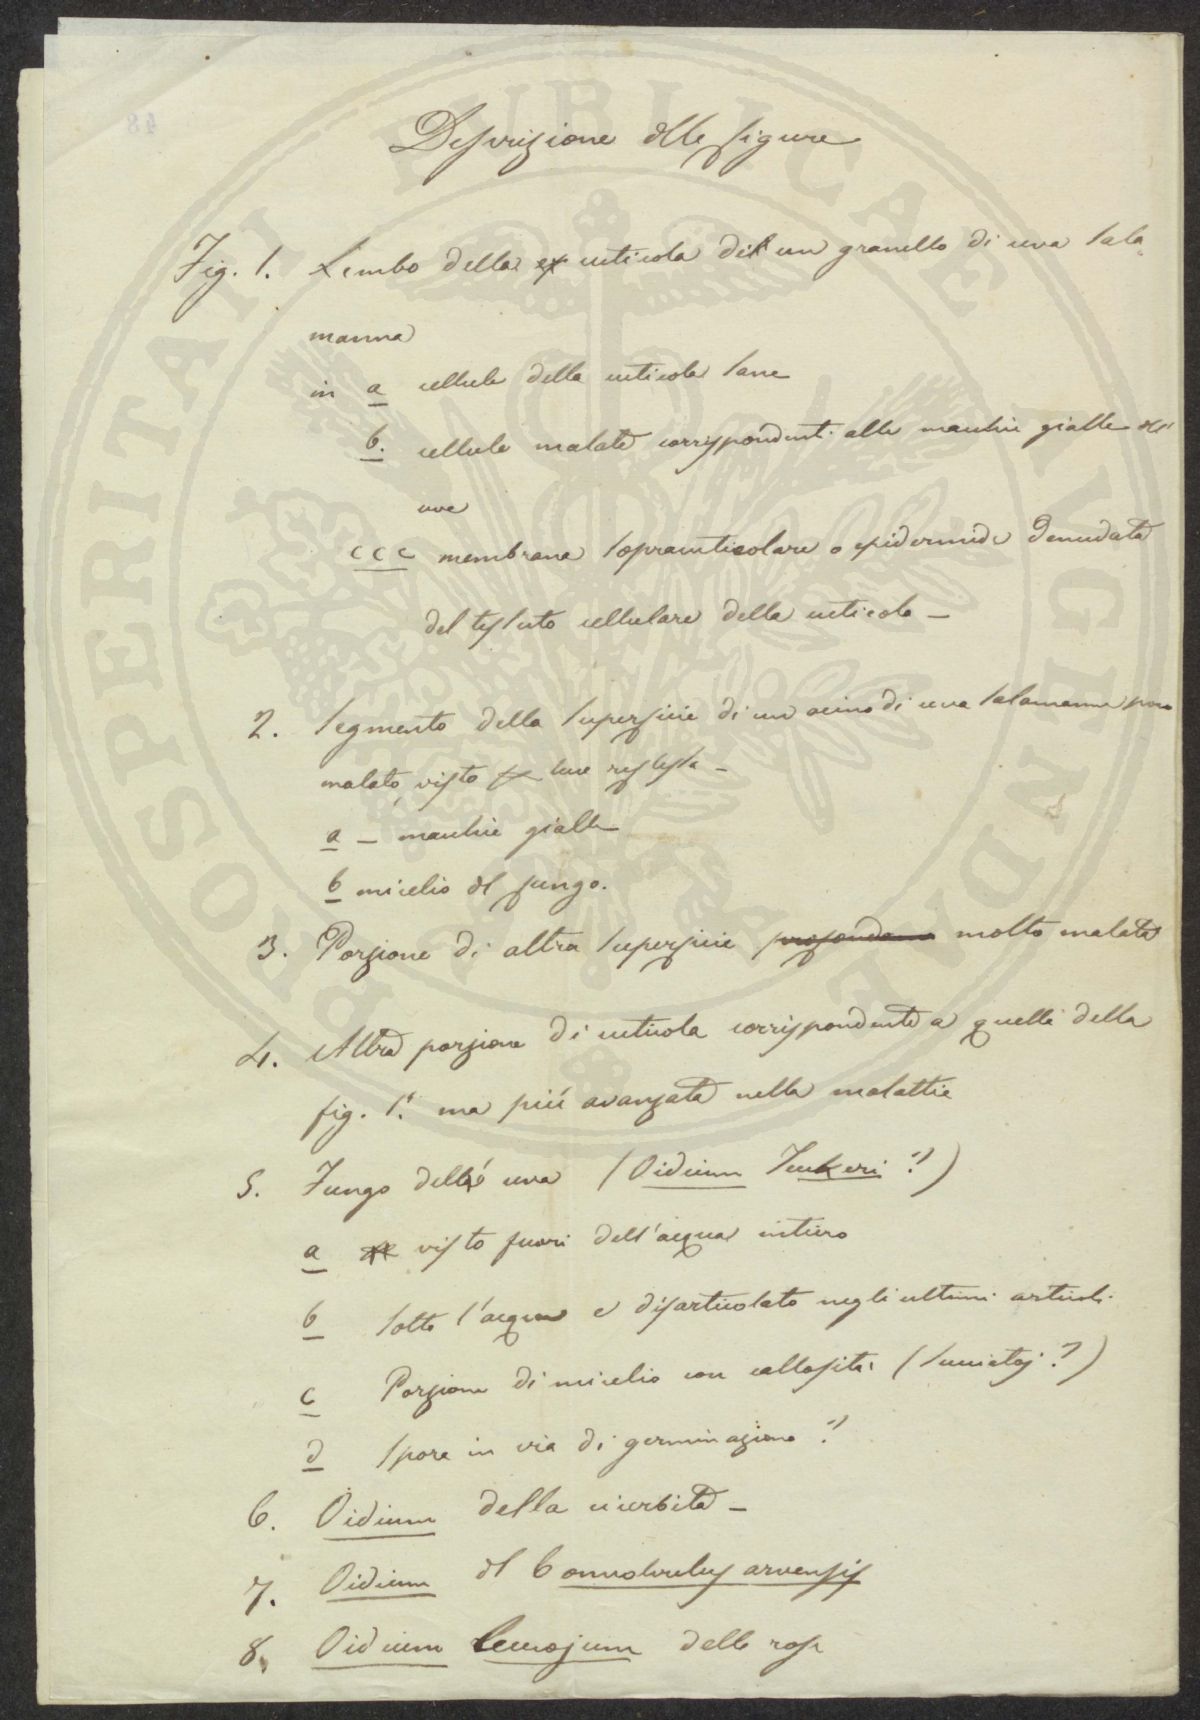 Descrizione delle figure
Fig. 1. Lembo della cuticola di un granello di uva sala
manna
in a cellule della cuticola sane
b. cellule malate corrispondenti alle macchie gialle dell'
uve
c c c membrana sopracuticolare o epidermide denudata
del tessuto cellulare della cuticola —
2. Segmento della superficie di un acino di uva salamanna poco
malato, visto per luce reflessa —
a — macchie gialle
b micelio del fungo.
3. Porzione di altra superficie profondame molto malata
4. Altra porzione di cuticola corrispondente a quelle della
fig. 1.ª ma piú avanzata nella malattia
5. Fungo dell'uva (Oidium Tuckeri?)
a visto fuori dell'acqua intiero
b sotto l'acqua e disarticolato negli ultimi articoli
c Porzione di micelio con callosità (?)
d Spore in via di germinazione?
6. Oidium della cicerbita —
7. Oidium del Convolvulus arvensis
8. Oidium leucojum delle rose
48
PROSPERITATI PUBLICAE AUGENDAE